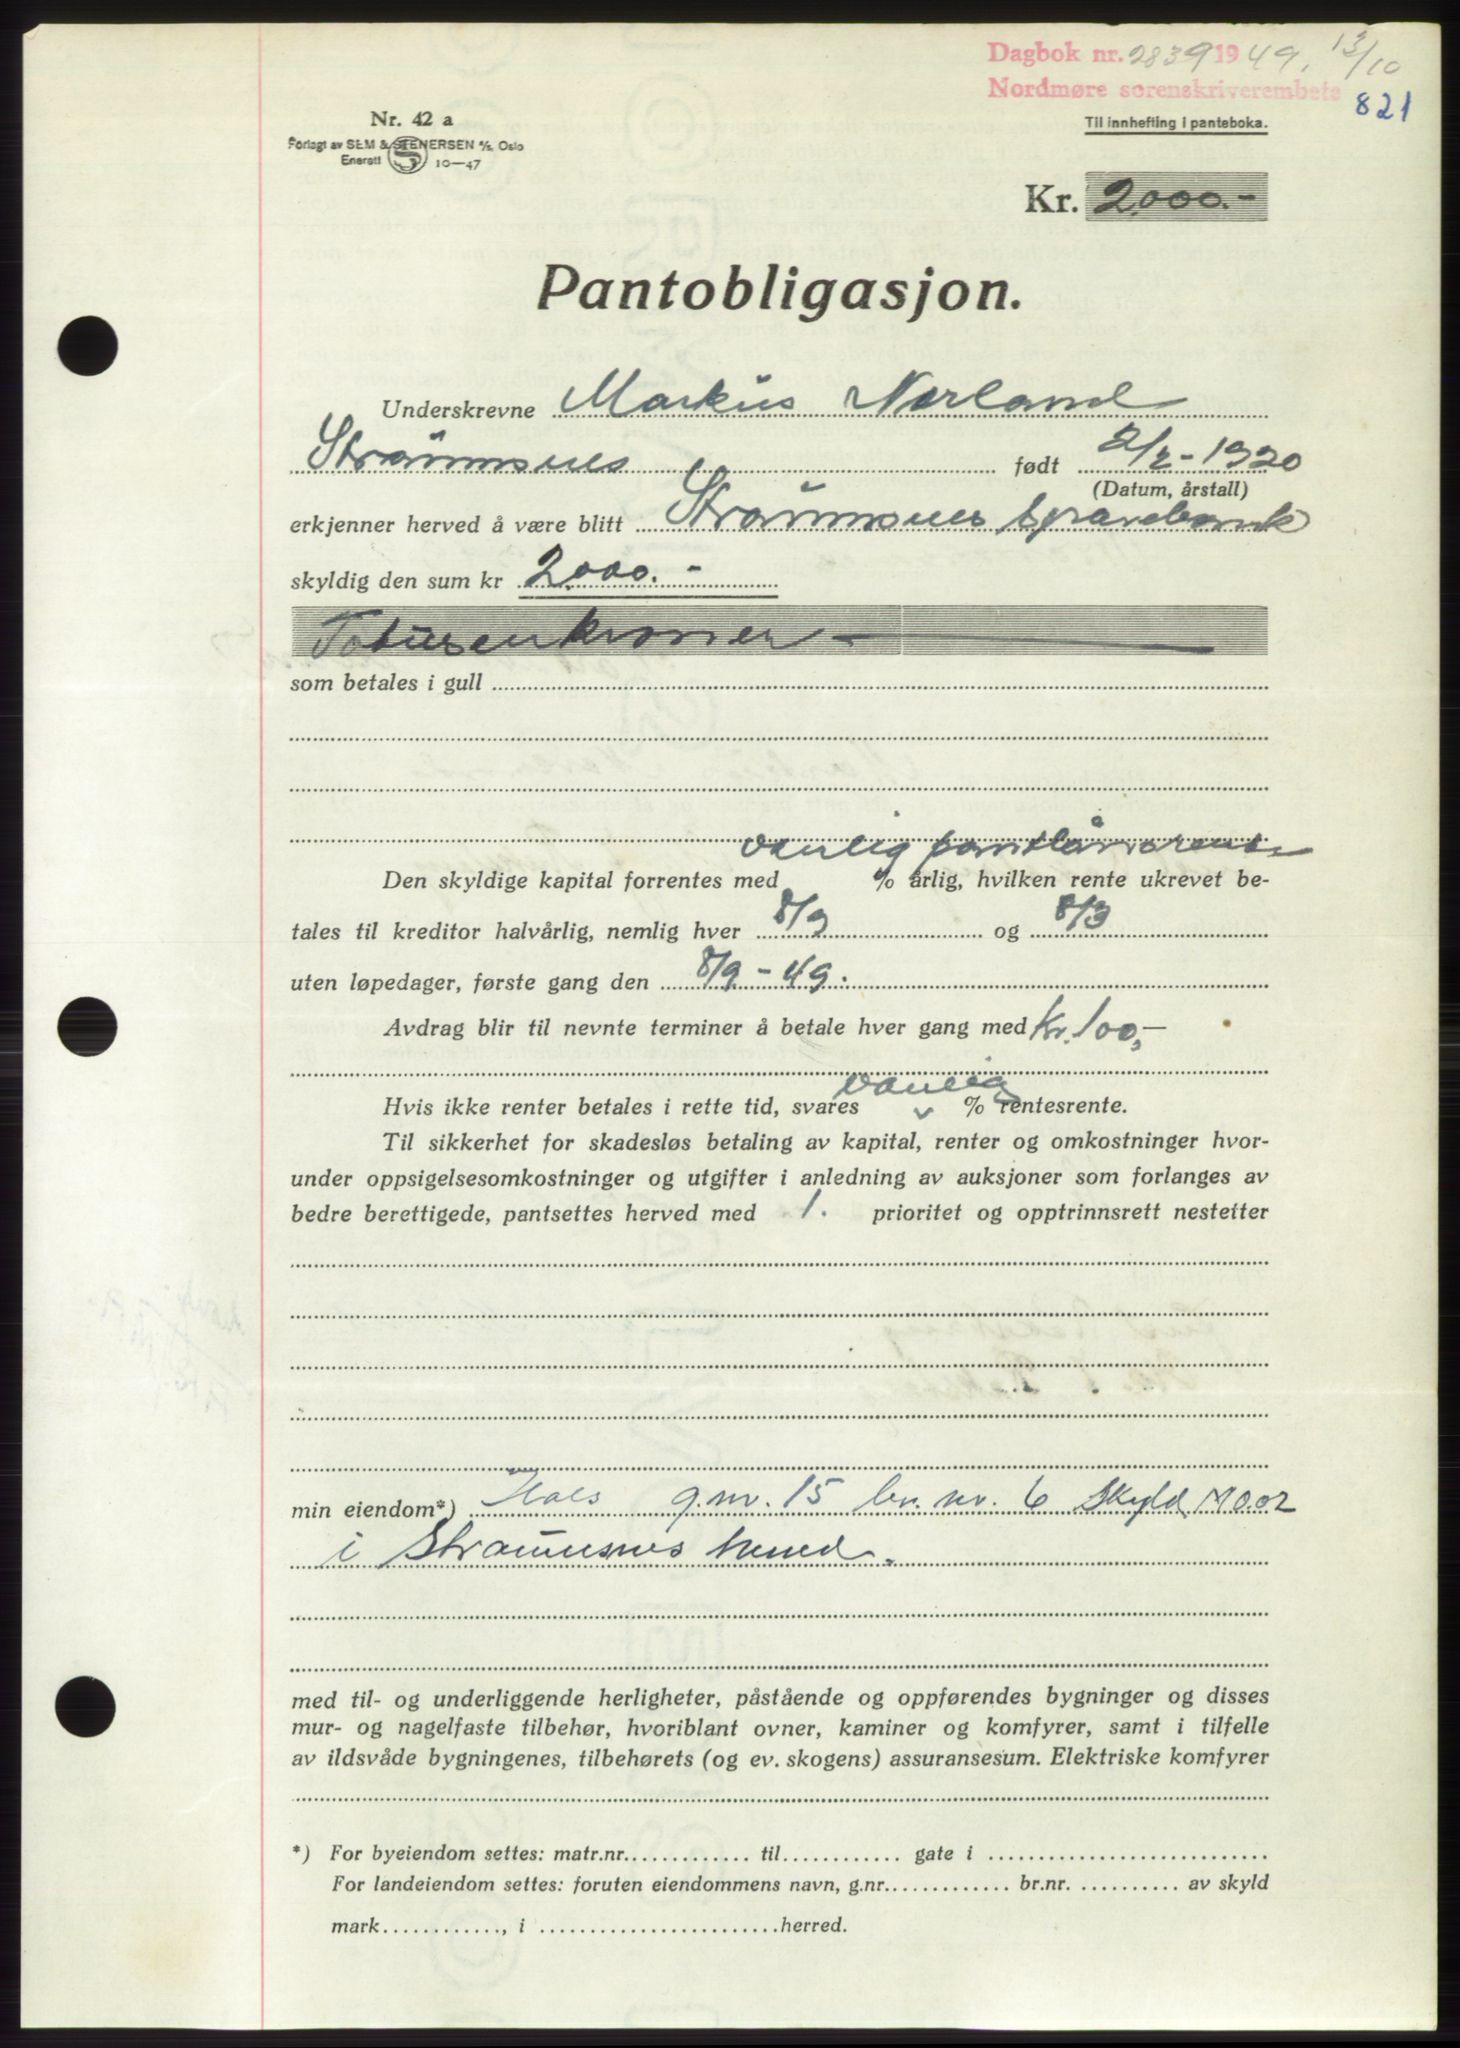 Dagbok nr. 2839 1949, 13/10
Nordmøre sorenskriverembete 821
Nr. 42 a
Til innhefting i panteboka.
Forlagt av SEM & STENERSEN A/S, Oslo
Enerett 10—47
Kr. 2.000.-
Pantobligasjon.
Underskrevne Markus Norland
Straumsnes født 2/2-1920
(Datum, årstall)
erkjenner herved å være blitt Straumsnes sparebank
skyldig den sum kr 2.000.-
Totusenkroner —
som betales i gull
vanlig pantlånsrente
Den skyldige kapital forrentes med % årlig, hvilken rente ukrevet be-
tales til kreditor halvårlig, nemlig hver 8/9 og 8/3
uten løpedager, første gang den 8/9-49.
Avdrag blir til nevnte terminer å betale hver gang med Kr. 100,-
vanlig
Hvis ikke renter betales i rette tid, svares % rentesrente.
Til sikkerhet for skadesløs betaling av kapital, renter og omkostninger hvor-
under oppsigelsesomkostninger og utgifter i anledning av auksjoner som forlanges av
bedre berettigede, pantsettes herved med 1. prioritet og opptrinnsrett nestetter
min eiendom*) g.nr. 15 br. nr. 6 Skyld M 0.02
i Straumsnes herred.
med til- og underliggende herligheter, påstående og oppførendes bygninger og disses
mur- og nagelfaste tilbehør, hvoriblant ovner, kaminer og komfyrer, samt i tilfelle
av ildsvåde bygningenes, tilbehørets (og ev. skogens) assuransesum. Elektriske komfyrer
*) For byeiendom settes: matr.nr. til gate i
For landeiendom settes: foruten eiendommens navn, g.nr. br.nr. av skyld
mark , i herred.